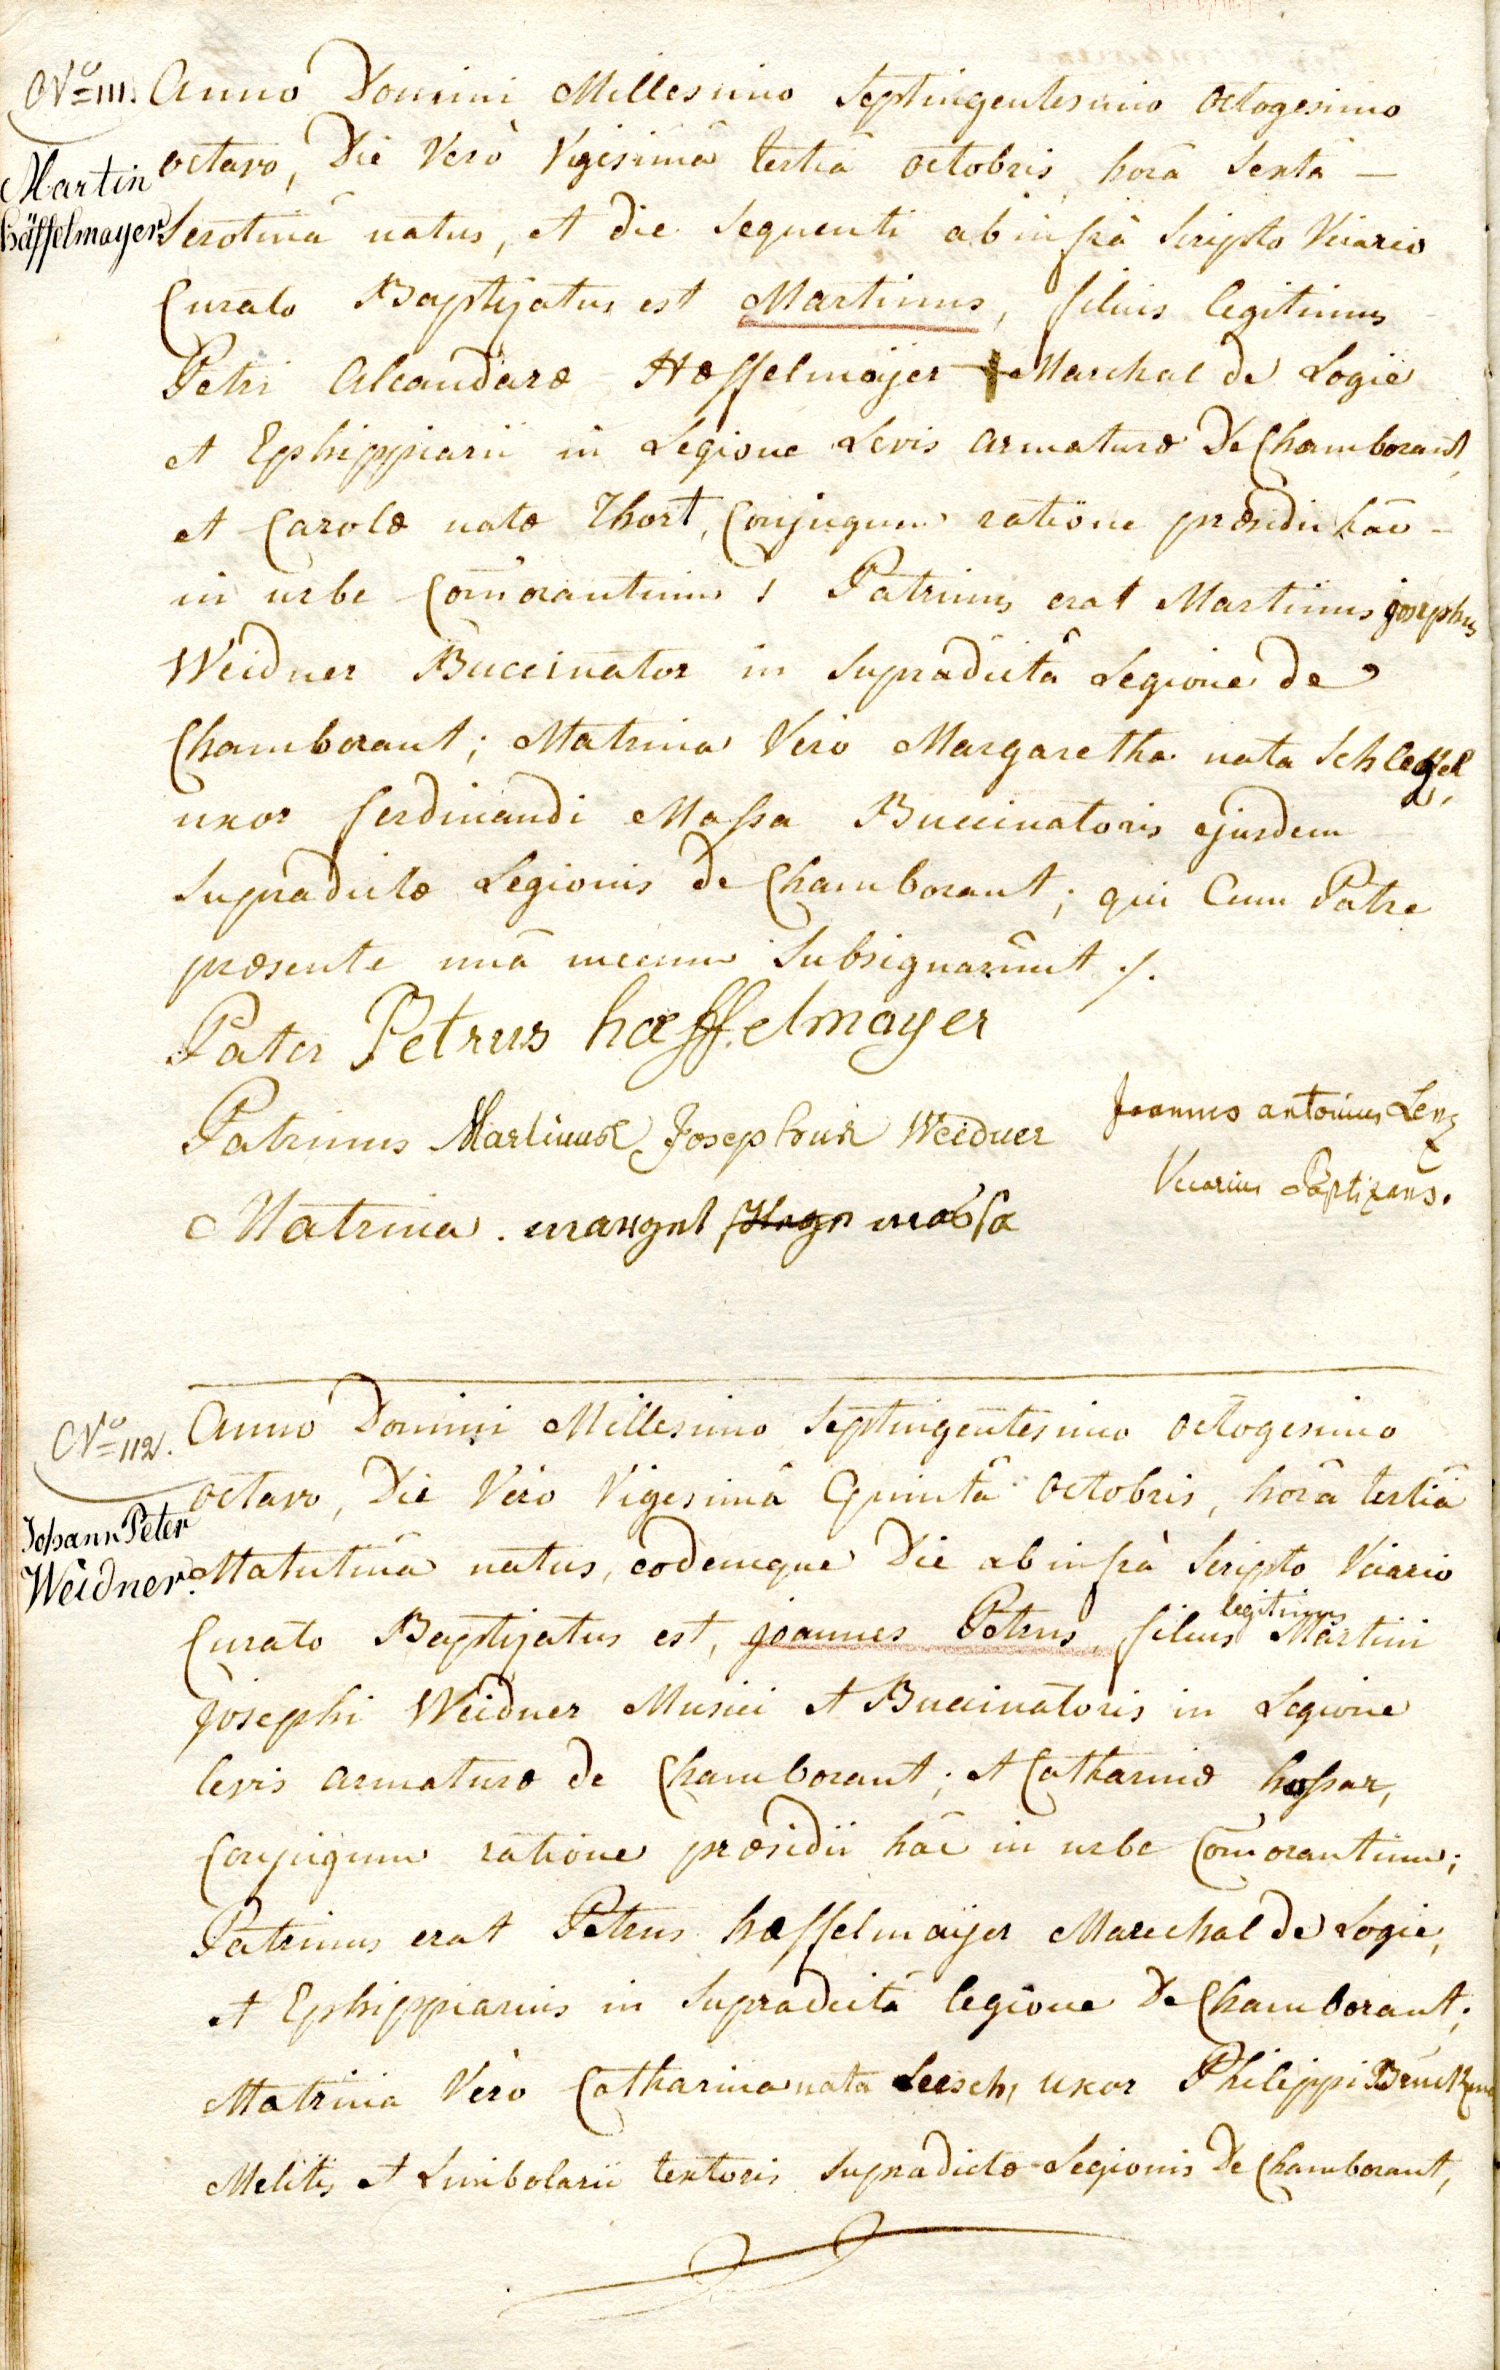 No 111. Anno Domini Millesimo Septingentesimo Octogesimo
Martin Häffelmayer
octavo, Die Verò Vigesimâ tertiâ octobris horâ Sextâ —
Serotinâ natus, et die Sequenti ab infrà Scripto Vicario
Curato Baptizatus est Martinus, filius legitimus
Petri Alexandaræ Hæffelmaÿer Marchal de Logie
et Ephippiarii in Legione Levis armaturæ De Chamborant,
et Carolæ natæ Thort, Conjugum ratione præsidii hâc —
in urbe Com̄orantium ; Patrinus erat Martinus josephus
Weidner Buccinator in Supradictâ Legione de
Chamborant; Matrina Vero Margaretha nata Schlegel,
uxor ferdinandi Massa Buccinatoris ejusdem
Supradictæ Legionis de Chamborant; qui Cum Patre
præsente unâ mecum Subsignarûnt ./.
Pater Petrus hæffelmayer
Patrinus Martinus Josephus Weidner
Joannes antonius Lenz
Vicarius Baptizans.
Matrina . margret massa
No 112. Anno Domini Millesimo Septingentesimo octogesimo
Johann Peter Weidner.
octavo, Die Vero Vigesimâ Quintâ Octobris, horâ tertiâ
Matutinâ natus, eodemque Die ab infrà Scripto Vicario
Curato Baptizatus est, joannes Petrus, filius legitimus Martini
josephi Weidner Musici et Buccinatoris in Legione
levis armaturæ de Chamborant; et Catharinæ hussar,
Conjugum ratione præsidii hâc in urbe Com̄orantium;
Patrinus erat Petrus hæffelmaÿer Marechal de Logie,
et Ephippiarius in Supradictâ legione De Chamborant;
Matrina Vèro Catharina nata Leesch, uxor Philippi
Melitis et Limbolarii textoris Supradictæ Legionis De Chamborant,